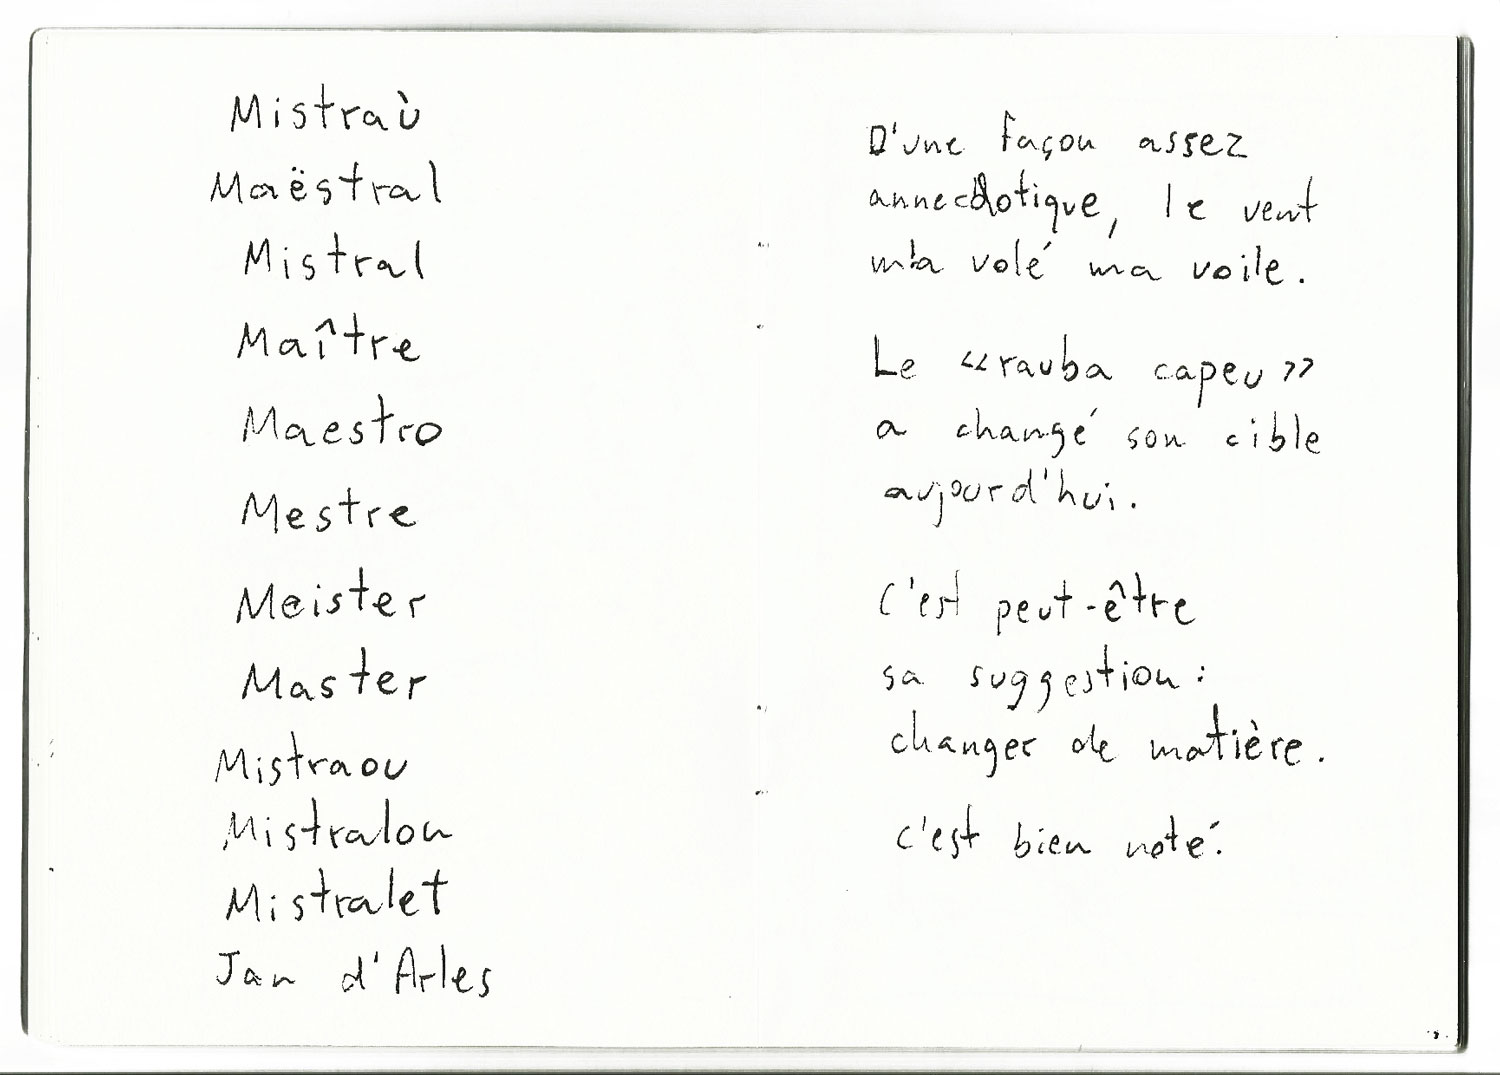 Mistraù
Maëstral
Mistral
Maître
Maestro
Mestre
Meister
Master
Mistraou
Mistralou
Mistralet
Jan d'Arles
D'une façon assez
annecdotique, le vent
m'a volé ma voile.
Le «rauba capeu»
a changé son cible
aujourd'hui.
C'est peut-être
sa suggestion :
changer de matière.
C'est bien noté.